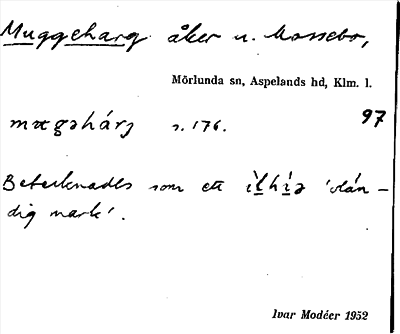 Muggeharg åker u. Mossebo,
Mörlunda sn, Aspelands hd, Klm. l.
97
s. 176.
Betecknades som ett "olän-
dig mark'.
Ivar Modéer 1952